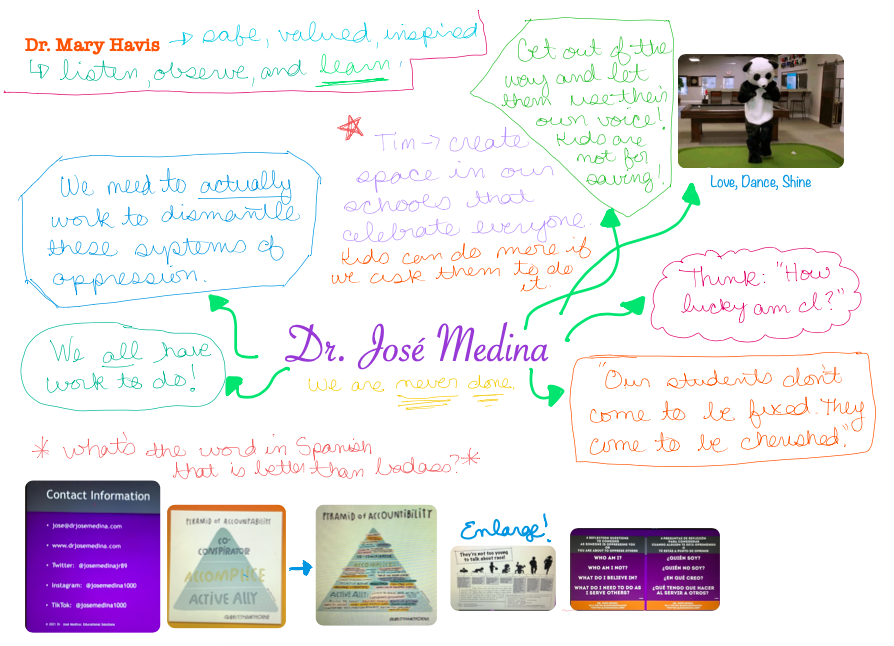 Dr. Mary Havis → safe, valued, inspired
↳ listen, observe, and learn.
Get out of the
way and let
them use their
own voice!
Kids are
not for
saving!
Love, Dance, Shine
Tim → create
space in our
schools that
celebrate everyone.
Kids can do more if
we ask them to do
it.
We need to actually
work to dismantle
these systems of
oppression.
Think: "How
lucky am I?"
Dr. José Medina
We are never done.
We all have
work to do!
"Our students don't
come to be fixed. They
come to be cherished."
* What's the word in Spanish
that is better than badass? *
Contact Information
• jose@drjosemedina.com
• www.drjosemedina.com
• Twitter: @josemedinajr89
• Instagram: @josemedina1000
• TikTok: @josemedina1000
© 2021 Dr. José Medina: Educational Solutions
PYRAMID of ACCOUNTABILITY
CO-
CONSPIRATOR
ACCOMPLICE
ACTIVE ALLY
PYRAMID of ACCOUNTIBILITY
Enlarge!
They're not too young
to talk about race!
WHO AM I?
WHO AM I NOT?
WHAT DO I BELIEVE IN?
WHAT DO I NEED TO DO AS
I SERVE OTHERS?
¿QUIÉN SOY?
¿QUIÉN NO SOY?
¿EN QUÉ CREO?
¿QUÉ TENGO QUE HACER
AL SERVIR A OTROS?